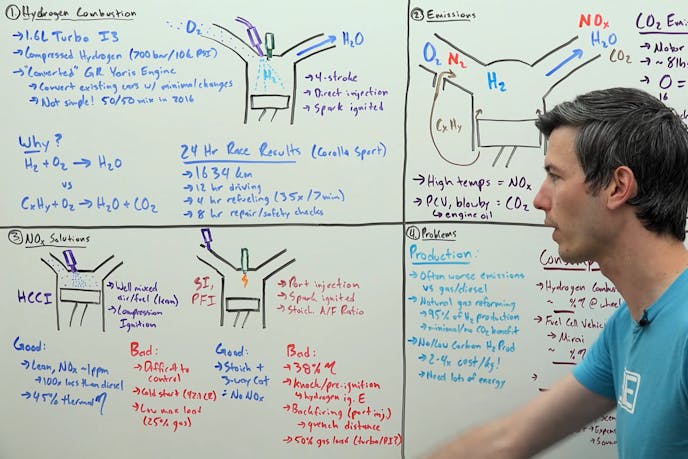 ① Hydrogen Combustion
→ 1.6L Turbo I3
→ Compressed Hydrogen (700 bar/10k PSI)
→ "Converted" GR Yaris Engine
→ Convert existing cars w/ minimal changes
→ Not simple! 50/50 mix in 2016
O₂
H₂
H₂O
→ 4-stroke
→ Direct injection
→ Spark ignited
Why?
H₂ + O₂ → H₂O
vs
CxHy + O₂ → H₂O + CO₂
24 Hr Race Results (Corolla Sport)
→ 1634 km
→ 12 hr driving
→ 4 hr refueling (35x/7min)
→ 8 hr repair/safety checks
② Emissions
O₂ N₂
H₂
NOx
H₂O
CO₂
CxHy
→ High temps = NOx
→ PCV, blowby = CO₂
↳ engine oil
CO₂ Emiss
→ Motor
→ ~ 8lb
→ O =
16
③ NOx Solutions
HCCI
→ Well mixed air/fuel (lean)
→ Compression Ignition
Good:
→ Lean, NOx ~1ppm
→ 100x less than diesel
→ 45% thermal η
Bad:
→ Difficult to control
→ Cold start (42:1 CR)
→ Low max load (25% gas)
SI, PFI
→ Port injection
→ Spark ignited
→ Stoich. A/F Ratio
Good:
→ Stoich + 3-way Cat = No NOx
Bad:
→ 38% η
→ Knock/pre-ignition
↳ hydrogen ig. E
→ Backfiring (port inj.)
↳ quench distance
→ 50% gas load (turbo/PI?)
④ Problems
Production:
→ Often worse emissions vs gas/diesel
→ Natural gas reforming
→ 95% of H₂ production
→ minimal/no CO₂ benefit
→ No/low carbon H₂ Prod
→ 2-4x cost/kg!
→ Need lots of energy
→ Hydrogen Combus
~ %η @ wheel
→ Fuel Cell Vehicl
→ Mirai
~ %η